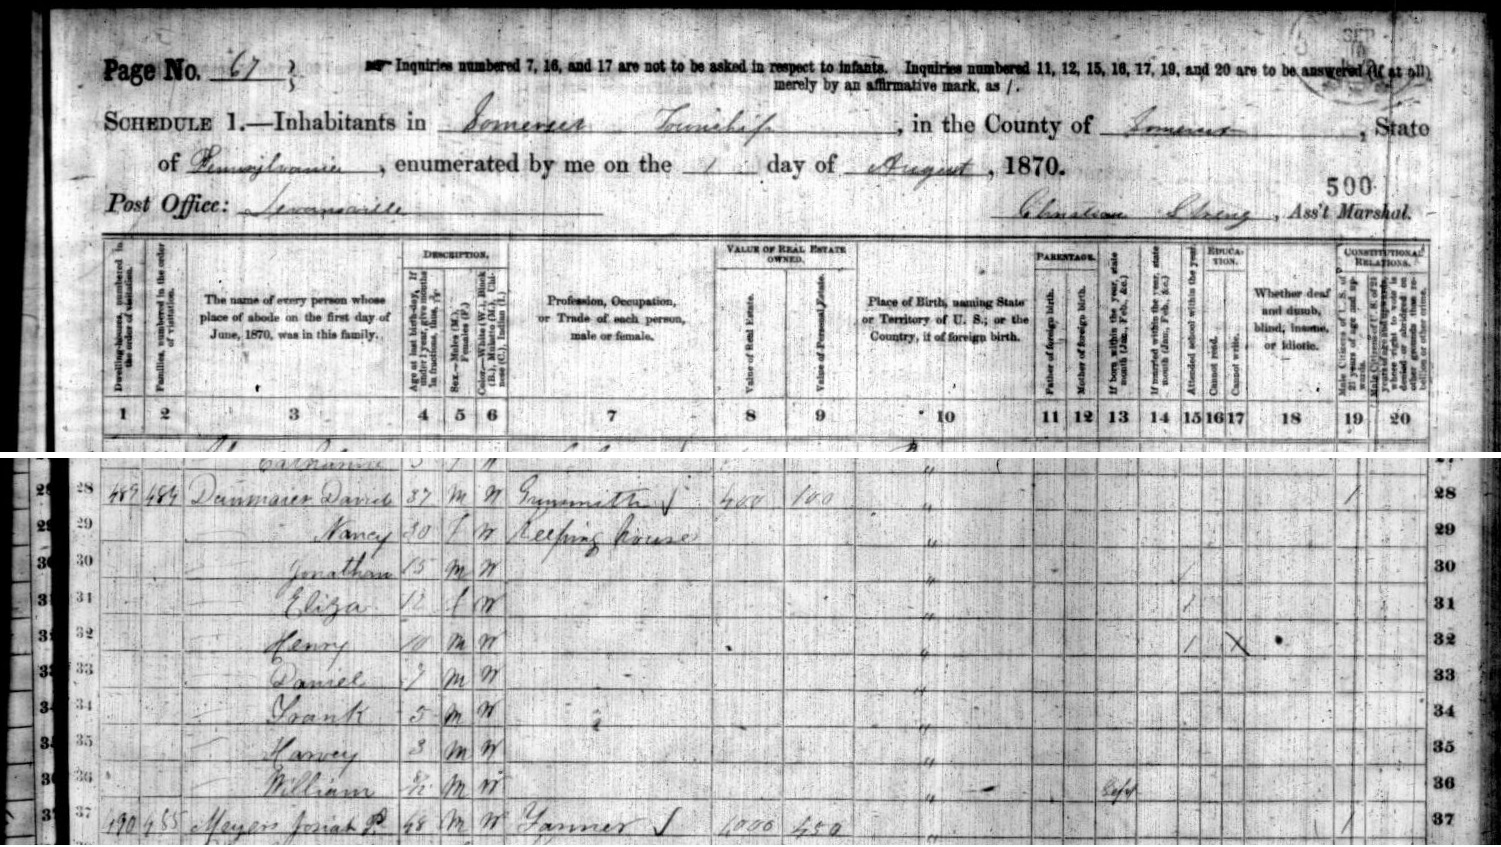 Page No. 67
Inquiries numbered 7, 16, and 17 are not to be asked in respect to infants. Inquiries numbered 11, 12, 15, 16, 17, 19, and 20 are to be answered (if at all)
merely by an affirmative mark, as /.
SCHEDULE 1.—Inhabitants in Somerset Township, in the County of Somerset, State
of Pennsylvania, enumerated by me on the 1 day of August, 1870.
500
Post Office: Lavansville Christian, Ass't Marshal.
DESCRIPTION. VALUE OF REAL ESTATE OWNED. PARENTAGE. EDUCATION. CONSTITUTIONAL RELATIONS.
Dwelling-houses, numbered in the order of visitation.
Families, numbered in the order of visitation.
The name of every person whose place of abode on the first day of June, 1870, was in this family.
Age at last birth-day. If under 1 year, give months in fractions, thus,
Sex.—Males (M.), Females (F.)
Color.—White (W.), Black (B.), Mulatto (M.), Chinese (C.), Indian (I.)
Profession, Occupation, or Trade of each person, male or female.
Value of Real Estate.
Value of Personal Estate.
Place of Birth, naming State or Territory of U. S.; or the Country, if of foreign birth.
Father of foreign birth.
Mother of foreign birth.
If born within the year, state month (Jan., Feb., &c.)
If married within the year, state month (Jan., Feb., &c.)
Attended school within the year.
Cannot read.
Cannot write.
Whether deaf and dumb, blind, insane, or idiotic.
Male Citizens of U. S. of 21 years of age and upwards.
Male Citizens of U. S. of 21 years of age and upwards, whose right to vote is denied or abridged on other grounds than rebellion or other crime.
1 2 3 4 5 6 7 8 9 10 11 12 13 14 15 16 17 18 19 20
Catharine
28 489 484 David 37 M W Gunsmith 400 100 " 1 28
29 Nancy 30 f W Keeping house " 29
30 Jonathan 15 M W " 30
31 Eliza 12 f W " 1 31
32 Henry 10 M W " 1 X 32
33 Daniel 7 M W " 33
34 Frank 5 M W " 34
35 Harvey 3 M W " 35
36 William M W " Sept 36
37 490 485 Meyers Josiah P. 48 M W Farmer 4000 450 " 1 37